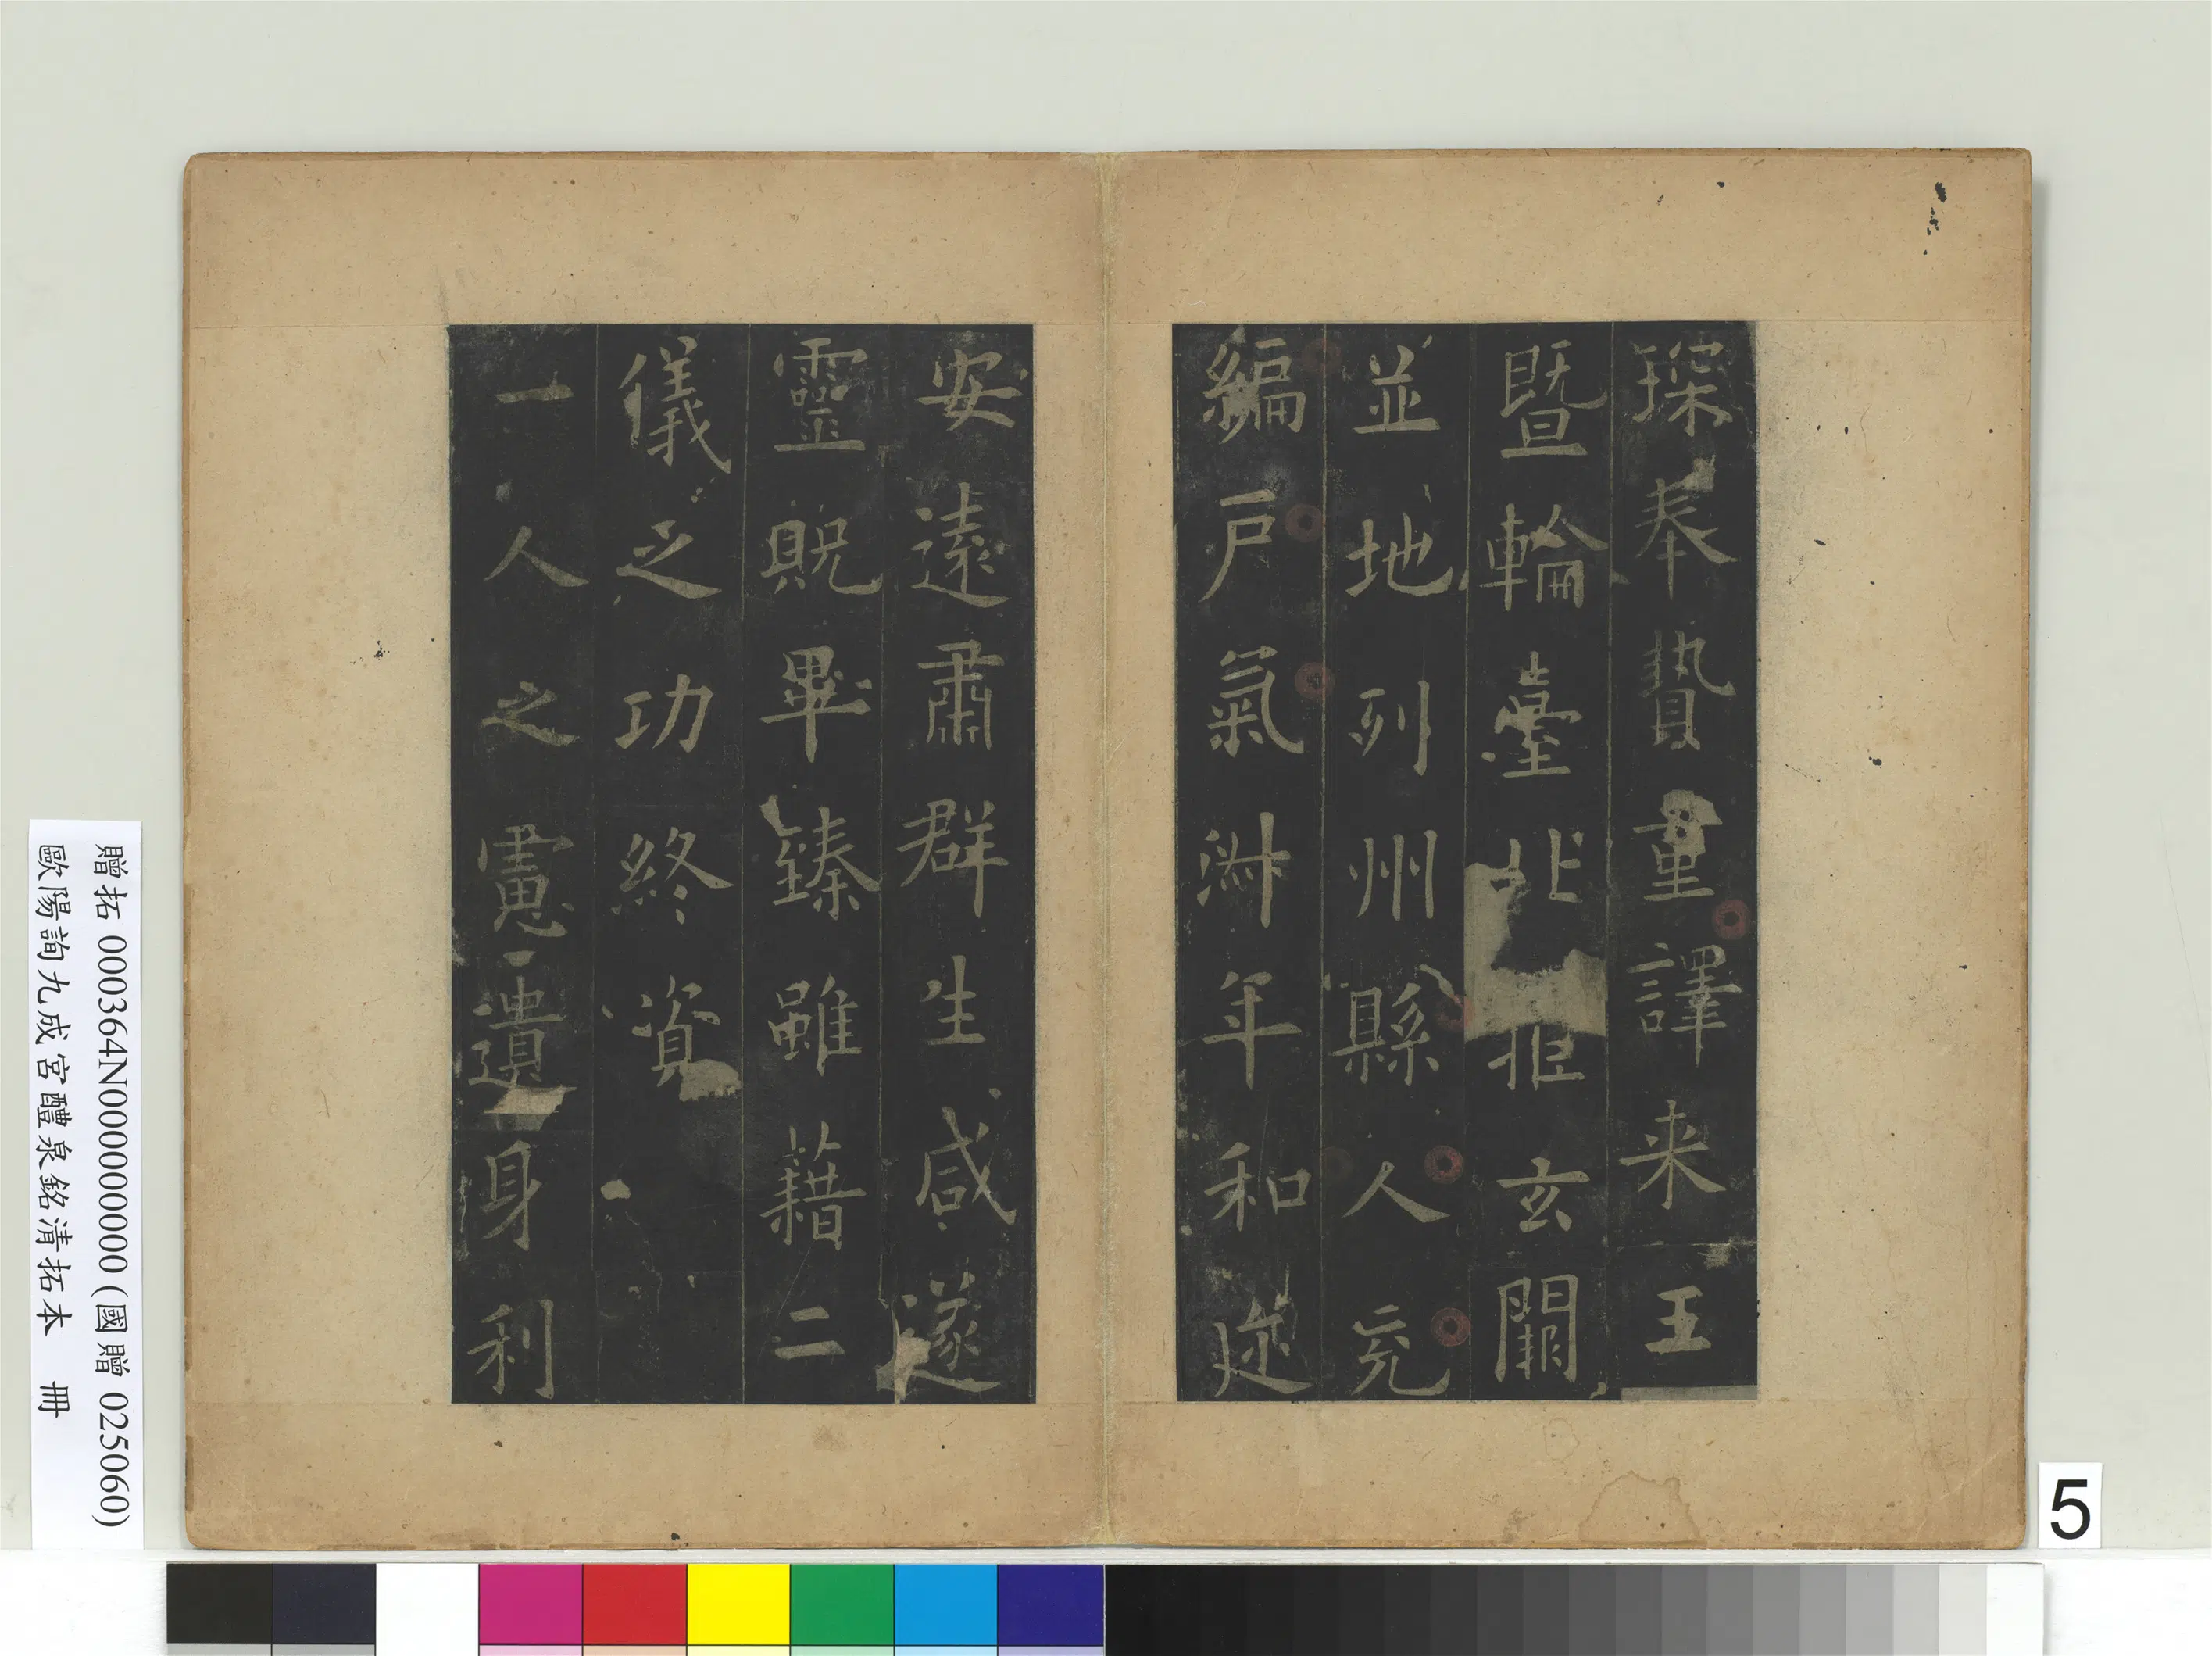 琛奉贄重譯来王
暨輪臺北拒玄闕
並地列州縣人充
編戶氣淋年和迩
安遠肅群生咸遂
靈貺畢臻雖藉二
儀之功終資
一人之慮遺身利
贈拓 000364N000000000 (國贈 025060)
歐陽詢九成宮醴泉銘清拓本 冊
5